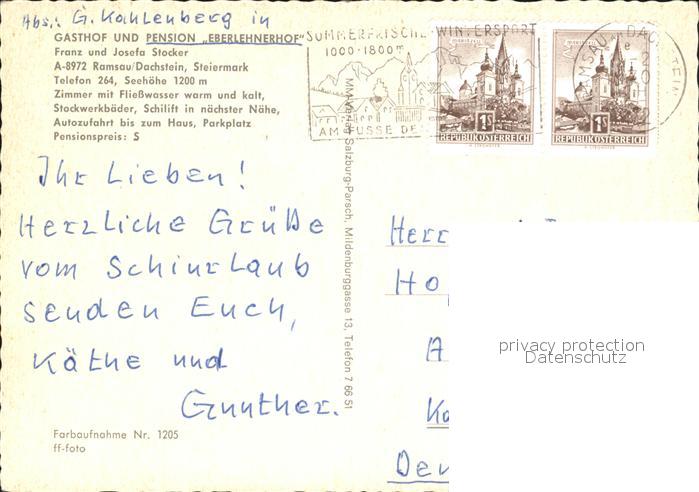 Abs.: G. Kahlenberg in
GASTHOF UND PENSION „EBERLEHNERHOF"
Franz und Josefa Stocker
A-8972 Ramsau/Dachstein, Steiermark
Telefon 264, Seehöhe 1200 m
Zimmer mit Fließwasser warm und kalt,
Stockwerkbäder, Schilift in nächster Nähe,
Autozufahrt bis zum Haus, Parkplatz
Pensionspreis: S
SOMMERFRISCHE WINTERSPORT
1000-1800m
AM FUSSE DE
1S
REPUBLIK ÖSTERREICH
1S
REPUBLIK ÖSTERREICH
Ihr Lieben!
Herzliche Grüße
vom Schiurlaub
senden Euch,
Käthe und
Gunther.
Farbaufnahme Nr. 1205
ff-foto
Salzburg-Parsch, Mildenburggasse 13, Telefon 7 66 51
Herr
Ho
A
Ka
Deu
privacy protection
Datenschutz